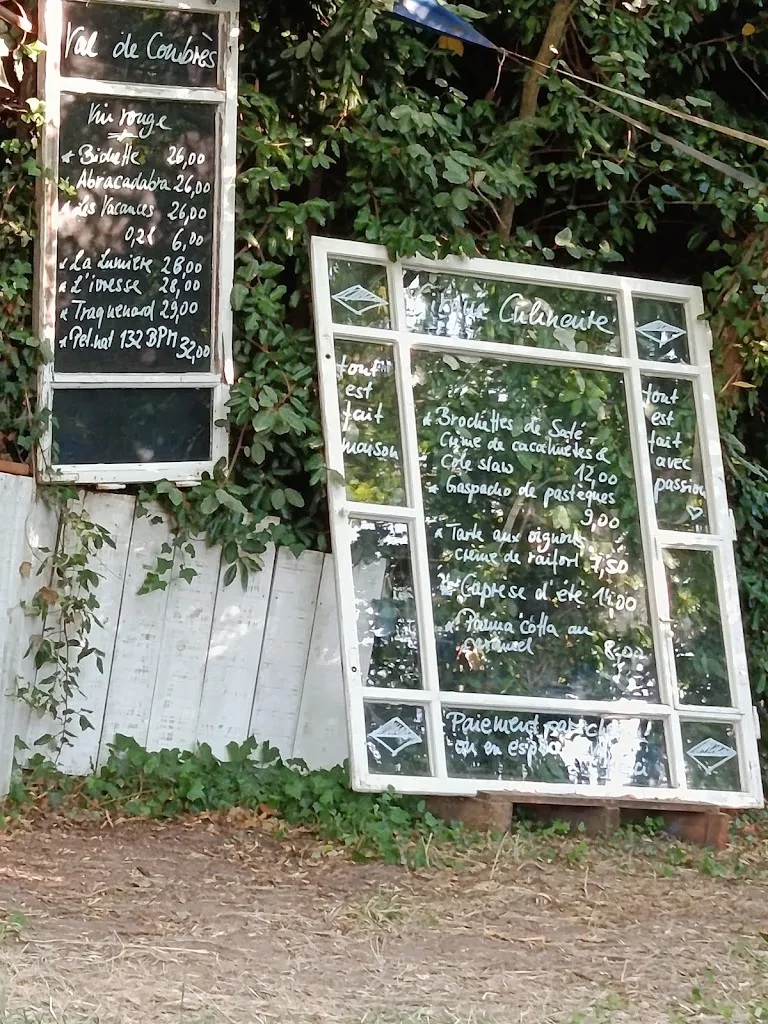 Val de Combrès
Vin rouge
* Bichette 26,00
* Abracadabra 26,00
* Les Vacances 26,00
0,2l 6,00
* La Lumière 28,00
* L'ivresse 28,00
* Traquenard 29,00
* Pet.nat 132 BPM
32,00
Culinaire
tout
est
fait
maison
* Brochettes de Saté
Crème de cacahuètes &
Cole slaw 12,00
* Gaspacho de pastèques
9,00
* Tarte aux oignons
crème de raifort 7,50
* Caprese d'été 14,00
* Panna cotta au
caramel 8,00
tout
est
fait
avec
passion
♡
Paiement par
ou en